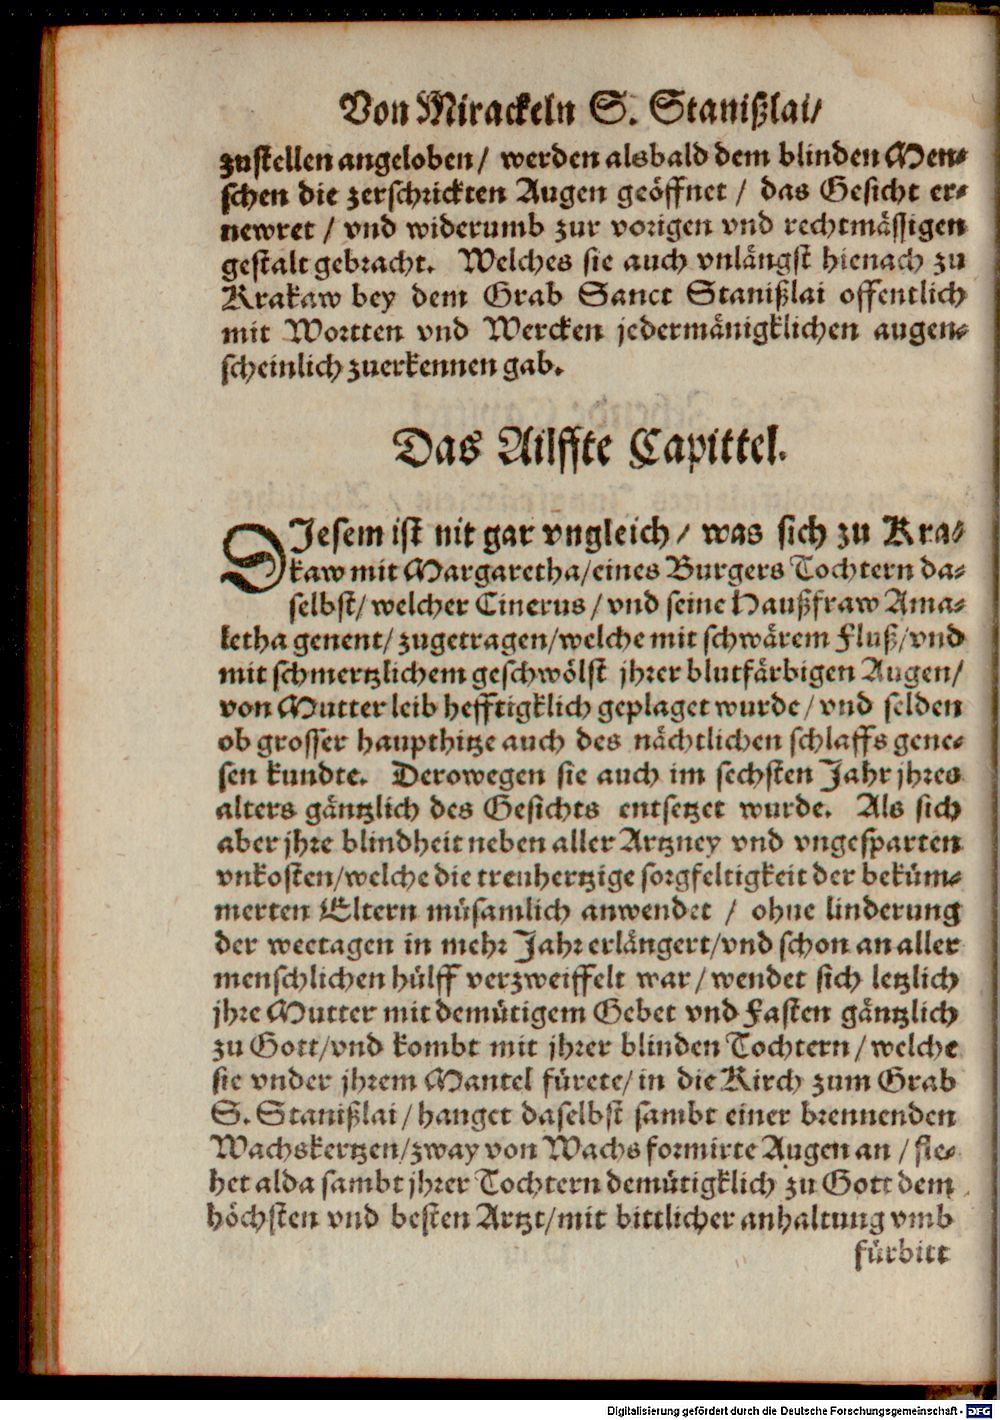 Von Mirackeln S. Stanißlai/
zustellen angeloben/ werden alsbald dem blinden Men-
schen die zerschrickten Augen geöffnet / das Gesicht er-
newret / vnd widerumb zur vorigen vnd rechtmässigen
gestalt gebracht. Welches sie auch vnlängst hienach zu
Krakaw bey dem Grab Sanct Stanißlai offentlich
mit Wortten vnd Wercken jedermänigklichen augen-
scheinlich zuerkennen gab.
Das Ailffte Capittel.
DIesem ist nit gar vngleich / was sich zu Kra-
kaw mit Margaretha/eines Burgers Tochtern da-
selbst/ welcher Cinerus / vnd seine Haußfraw Ama-
ketha genent/ zugetragen/welche mit schwärem Fluß/vnd
mit schmertzlichem geschwölst jhrer blutfärbigen Augen/
von Mutter leib hefftigklich geplaget wurde/ vnd selden
ob grosser haupthitze auch des nächtlichen schlaffs gene-
sen kundte. Derowegen sie auch im sechsten Jahr jhres
alters gäntzlich des Gesichts entsetzet wurde. Als sich
aber jhre blindheit neben aller Artzney vnd vngesparten
vnkosten/welche die treuhertzige sorgfeltigkeit der beküm-
merten Eltern müsamlich anwendet / ohne linderung
der weetagen in mehr Jahr erlängert/vnd schon an aller
menschlichen hülff verzweiffelt war/ wendet sich letzlich
jhre Mutter mit demütigem Gebet vnd Fasten gäntzlich
zu Gott/vnd kombt mit jhrer blinden Tochtern / welche
sie vnder jhrem Mantel fürete/ in die Kirch zum Grab
S. Stanißlai / hanget daselbst sambt einer brennenden
Wachskertzen/zway von Wachs formirte Augen an / fle-
het alda sambt jhrer Tochtern demütigklich zu Gott dem
höchsten vnd besten Artzt/mit bittlicher anhaltung vmb
fürbitt
Digitalisierung gefördert durch die Deutsche Forschungsgemeinschaft - DFG